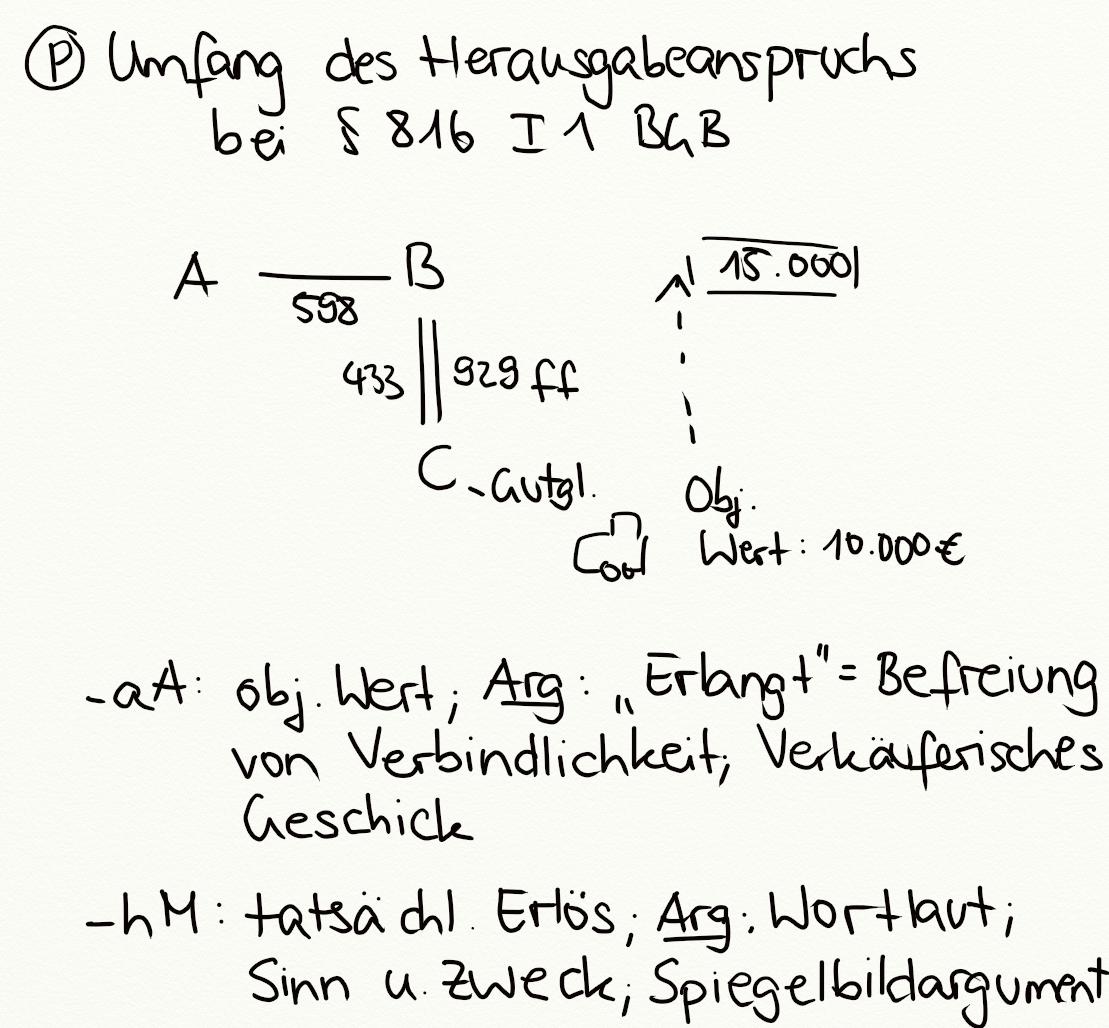 Ⓟ Umfang des Herausgabeanspruchs
bei § 816 I 1 BGB
A B 15.000
598
433 929 ff
C - Gutgl. Obj.
Wert: 10.000€
- aA: obj. Wert; Arg: „Erlangt" = Befreiung
von Verbindlichkeit; Verkäuferisches
Geschick
- hM: tatsächl. Erlös; Arg: Wortlaut;
Sinn u. Zweck; Spiegelbildargument